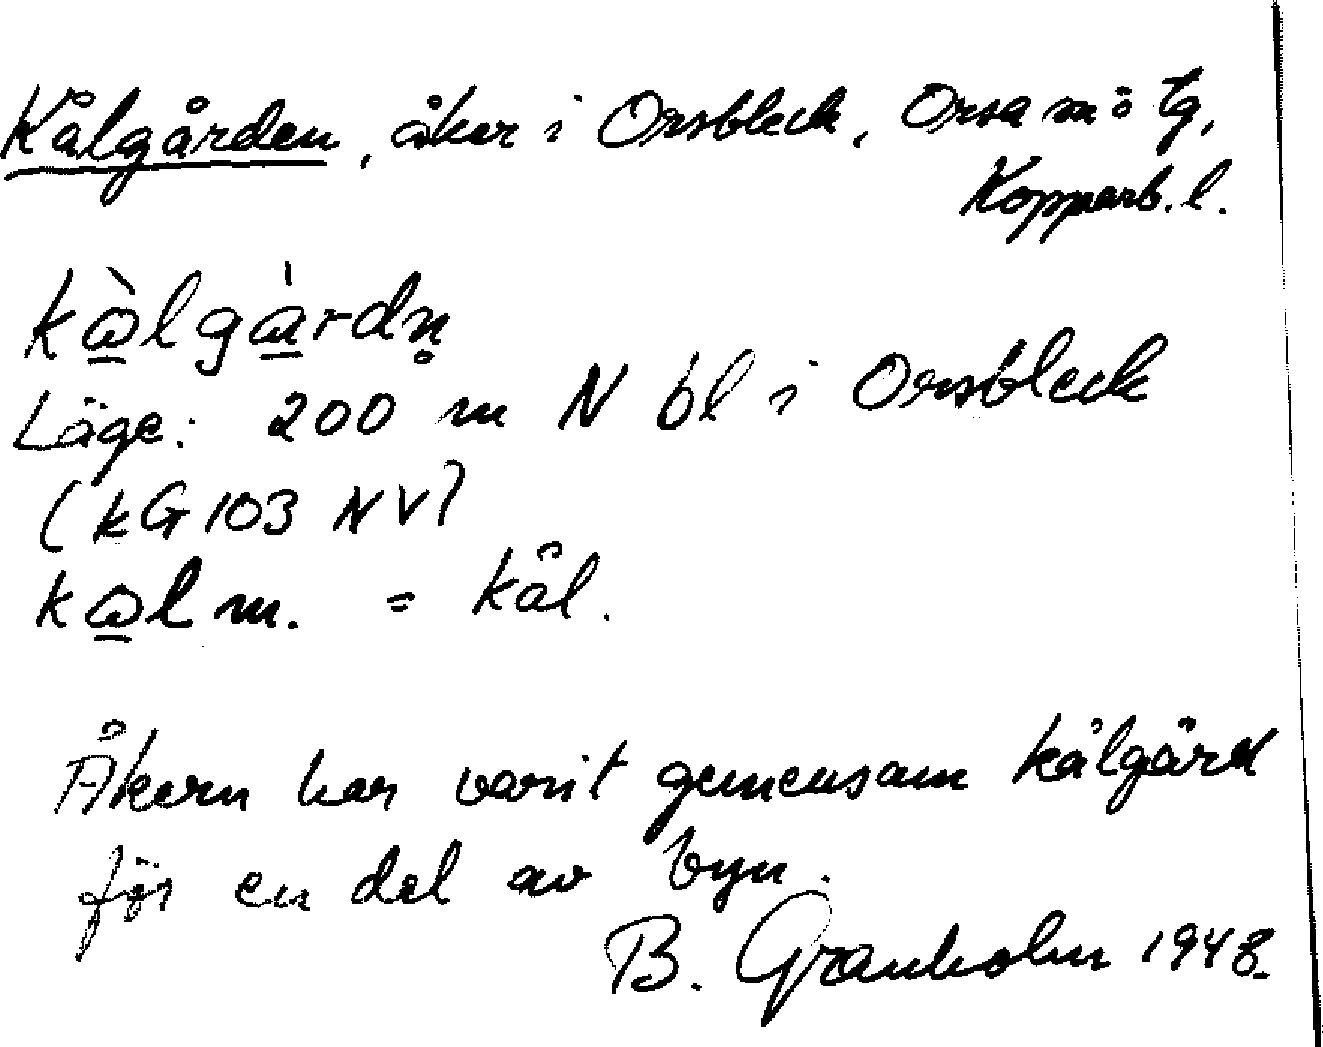 Kålgården, åker i Orsbleck, Orsa sn ö tg,
Kopparb. l.
kàlgàrdn̥
Läge: 200 m N bl i Orsbleck
(kG 103 NV)
kal m. = kål.
Åkern har varit gemensam kålgård
för en del av byn.
B. Granholm 1948